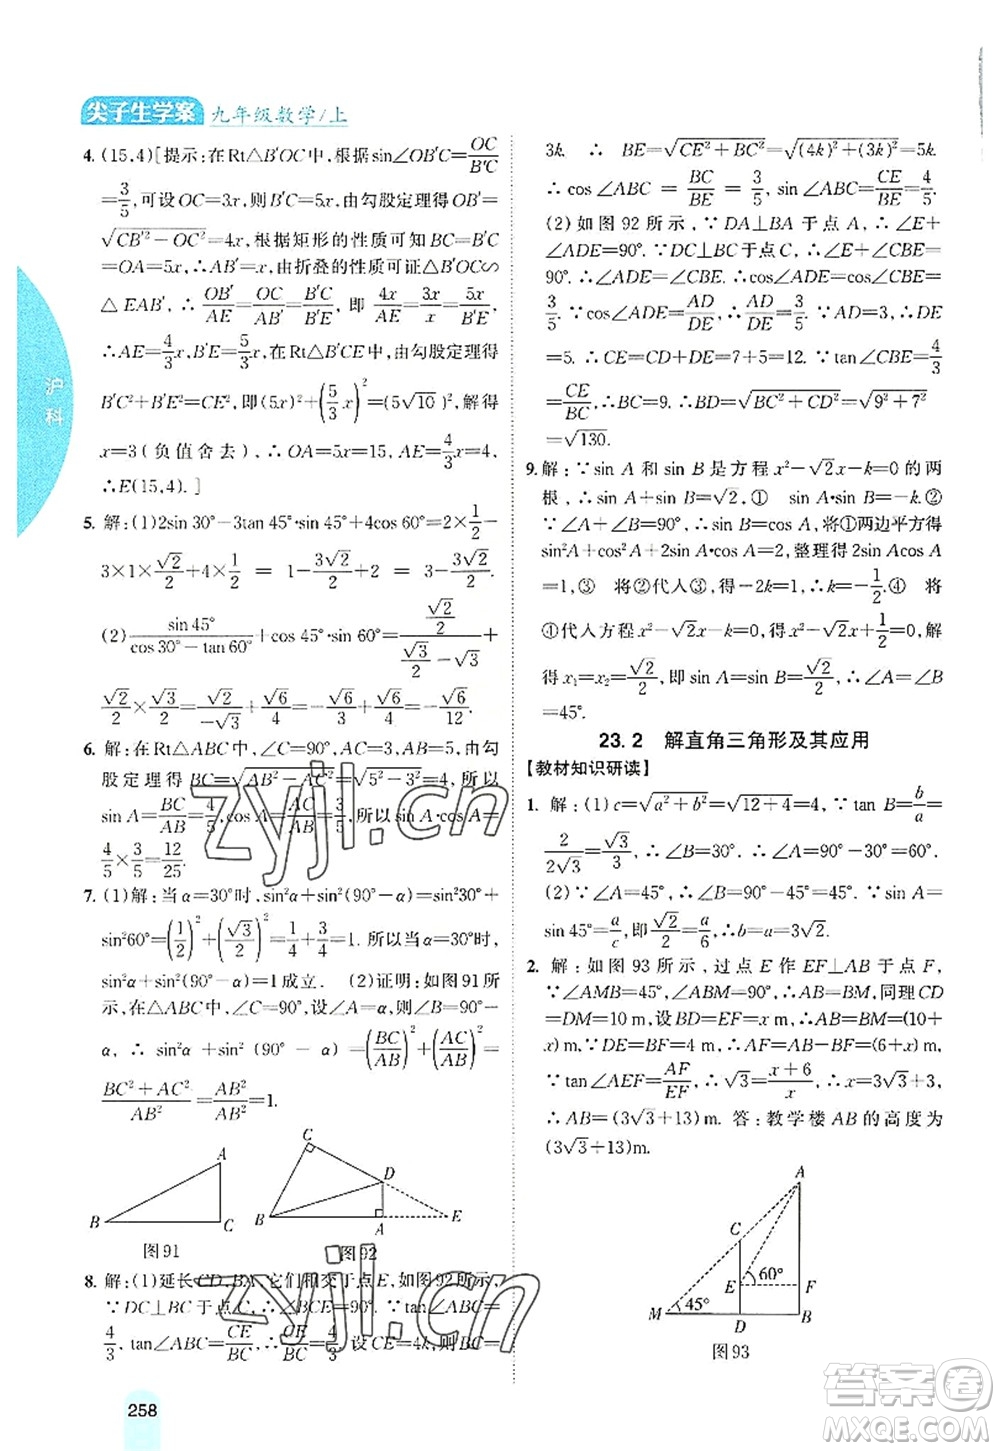 尖子生学案 九年级数学/上
4. (15,4)[提示:在Rt△B′OC中,根据sin∠OB′C=OC/B′C
=3/5,可设OC=3x,则B′C=5x,由勾股定理得OB′=
√(CB′²-OC²)=4x,根据矩形的性质可知B′C=BC
=OA=5x,∴AB′=x,由折叠的性质可证△B′OC∽
△EAB′,∴OB′/AE=OC/AB′=B′C/B′E,即4x/AE=3x/x=5x/B′E.
∴AE=4/3x,B′E=5/3x.在Rt△B′CE中,由勾股定理得
B′C²+B′E²=CE²,即(5x)²+(5/3x)²=(5√10)²,解得
x=3(负值舍去),∴OA=5x=15,AE=4/3x=4,
∴E(15,4).]
5. 解:(1)2sin 30°-3tan 45°·sin 45°+4cos 60°=2×1/2-
3×1×√2/2+4×1/2=1-3√2/2+2=3-3√2/2.
(2)sin 45°/(cos 30°-tan 60°)+cos 45°·sin 60°=(√2/2)/(√3/2-√3)+
√2/2×√3/2=√2/(-√3)+√6/4=-√6/3+√6/4=-√6/12.
6. 解:在Rt△ABC中,∠C=90°,BC=4,AB=5,由勾
股定理,得AC=√(AB²-BC²)=√(5²-4²)=3,∴
sin A=BC/AB=4/5,cos A=AC/AB=3/5,∴sin A·cos A=
4/5×3/5=12/25.
7. (1)解:当α=30°时,sin²α+sin²(90°-α)=sin²30°+
sin²60°=(1/2)²+(√3/2)²=1/4+3/4=1.所以当α=30°时,
sin²α+sin²(90°-α)=1成立. (2)证明:如图91所
示,在△ABC中,∠C=90°,设∠A=α,则∠B=90°-
α,∴sin²α+sin²(90°-α)=(BC/AB)²+(AC/AB)²=
(BC²+AC²)/AB²=AB²/AB²=1.
A
B
C
图91
C
D
B
A
E
图92
8. 解:(1)延长CD,BA,它们相交于点E,如图92所示,
∵DC⊥BC于点C,∴∠BCE=90°.∵tan∠ABC=
4/3,tan∠ABC=CE/BC,∴CE/BC=4/3,设CE=4k,则BC=
3k. ∴BE=√(CE²+BC²)=√((4k)²+(3k)²)=5k.
∴cos∠ABC=BC/BE=3/5,sin∠ABC=CE/BE=4/5.
(2)如图92所示,∵DA⊥BA于点A,∴∠E+
∠ADE=90°.∵DC⊥BC于点C,∴∠E+∠CBE=
90°.∴∠ADE=∠CBE.∴cos∠ADE=cos∠CBE=
3/5.∵cos∠ADE=AD/DE,∴AD/DE=3/5.∵AD=3,∴DE
=5.∴CE=CD+DE=7+5=12.∵tan∠CBE=4/3=
CE/BC,∴BC=9.∴BD=√(BC²+CD²)=√(9²+7²)
=√130.
9. 解:∵sin A和sin B是方程x²-√2x-k=0的两
根,∴sin A+sin B=√2,① sin A·sin B=-k.②
∵∠A+∠B=90°,∴sin B=cos A,将①两边平方得
sin²A+cos²A+2sin A·cos A=2,整理得2sin A·cos A
=1,③ 将②代入③,得-2k=1,∴k=-1/2.④ 将
④代入方程x²-√2x-k=0,得x²-√2x+1/2=0,解
得x₁=x₂=√2/2,即sin A=sin B=√2/2,∴∠A=∠B
=45°.
23.2 解直角三角形及其应用
【教材知识研读】
1. 解:(1)c=√(a²+b²)=√(12+4)=4,∵tan B=b/a=
2/(2√3)=√3/3,∴∠B=30°.∴∠A=90°-30°=60°.
(2)∵∠A=45°,∴∠B=90°-45°=45°.∵
sin 45°=a/c,即√2/2=a/6,∴a=b=3√2.
2. 解:如图93所示,过点E作EF⊥AB于点F,
∵∠AMB=45°,∴MB=AB,同理CD
=DM=10 m,设BD=EF=x m,∴AB=MB=(10+
x)m.∵DE=BF=4 m,∴AF=AB-BF=(6+x)m.
∵tan∠AEF=AF/EF,∴√3=(x+6)/x,∴x=3√3+3,
∴AB=(3√3+13)m. 答:教学楼AB的高度为
(3√3+13)m.
A
C
E
60°
F
M
45°
D
B
图93
沪科
258
zyjl.cn
zyjl.cn
答案圈
MXQE.COM